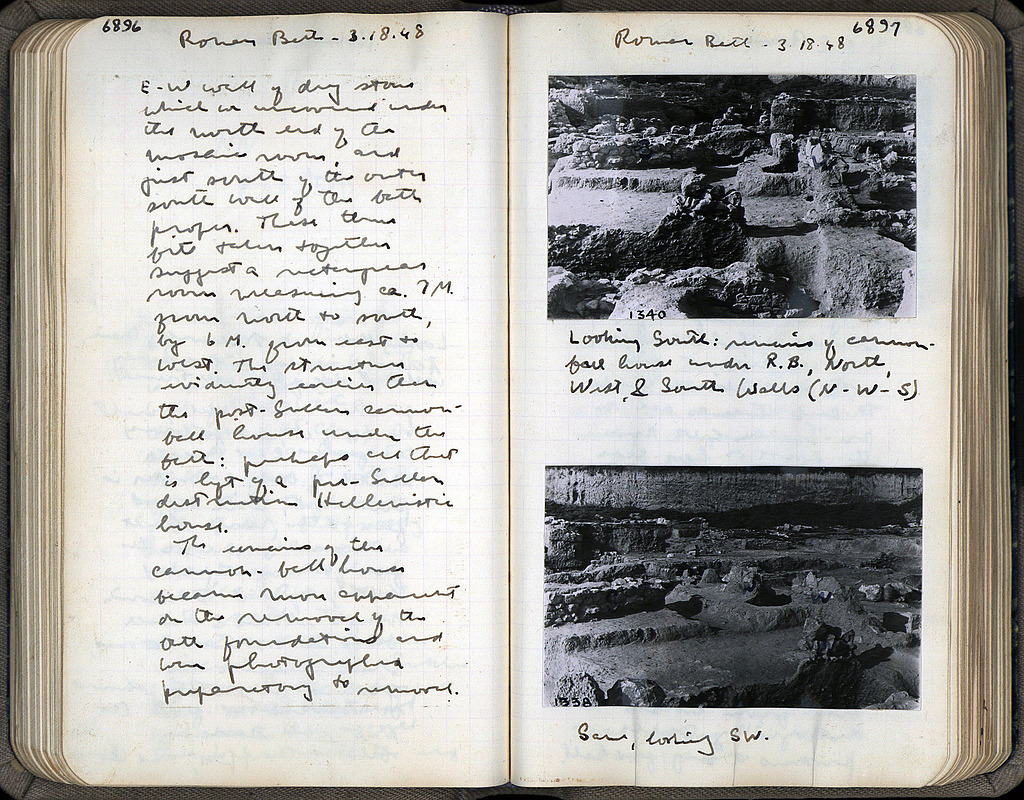 6896
Roman Bath - 3.18.48
E-W wall of dry stone
which we uncovered under
the north end of the
mosaic room, and
just south of the outer
south wall of the bath
proper. These three
bits taken together
suggest a rectangular
room measuring ca. 7 M.
from north to south,
by 6 M. from east to
west. The structure
evidently earlier than
the post-Sullan cannon-
ball house under the
bath: perhaps all that
is left of a pre-Sullan
destruction Hellenistic
house.
The remains of the
cannon-ball house
became more apparent
on the removal of the
foundations and
were photographed
preparatory to removal.
6897
Roman Bath - 3.18.48
1340
Looking South: remains of cannon-
ball house under R.B., North,
West, & South Walls (N-W-S)
1338
Same, looking SW.